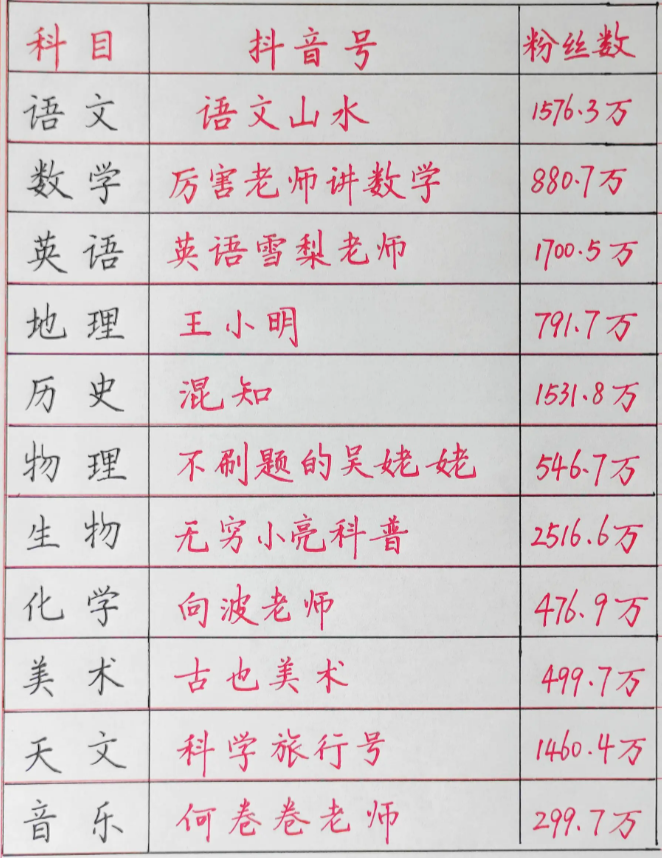 科目 抖音号 粉丝数
语文 语文山水 1576.3万
数学 厉害老师讲数学 880.7万
英语 英语雪梨老师 1700.5万
地理 王小明 791.7万
历史 混知 1531.8万
物理 不刷题的吴姥姥 546.7万
生物 无穷小亮科普 2516.6万
化学 向波老师 476.9万
美术 古也美术 499.7万
天文 科学旅行号 1460.4万
音乐 何卷卷老师 299.7万